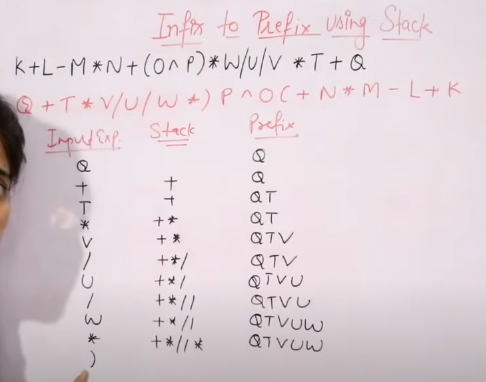 Infix to Prefix using Stack
K+L-M*N+(O^P)*W/U/V*T+Q
Q+T*V/U/W*)P^O(+N*M-L+K
Input Exp. Stack Prefix
Q Q
+ + Q
T + QT
* +* QT
V +* QTV
/ +*/ QTV
U +*/ QTVU
/ +*// QTVU
W +*// QTVUW
* +*//* QTVUW
)